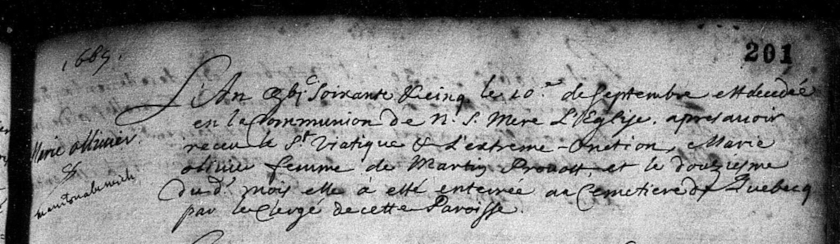 201
1665.
L'An gbjc Soixante & cinq le 10e de Septembre est decedée
en la Communion de N. S. Mere L'Eglise, apres avoir
receu le St Viatique & L'extreme-onction, Marie
olivie femme de Martin Prevost, et le douziesme
du d. mois elle à esté enterrée au Cemetiere de Quebecq
par le Clergé de cette Paroisse.
Marie ollivier
&